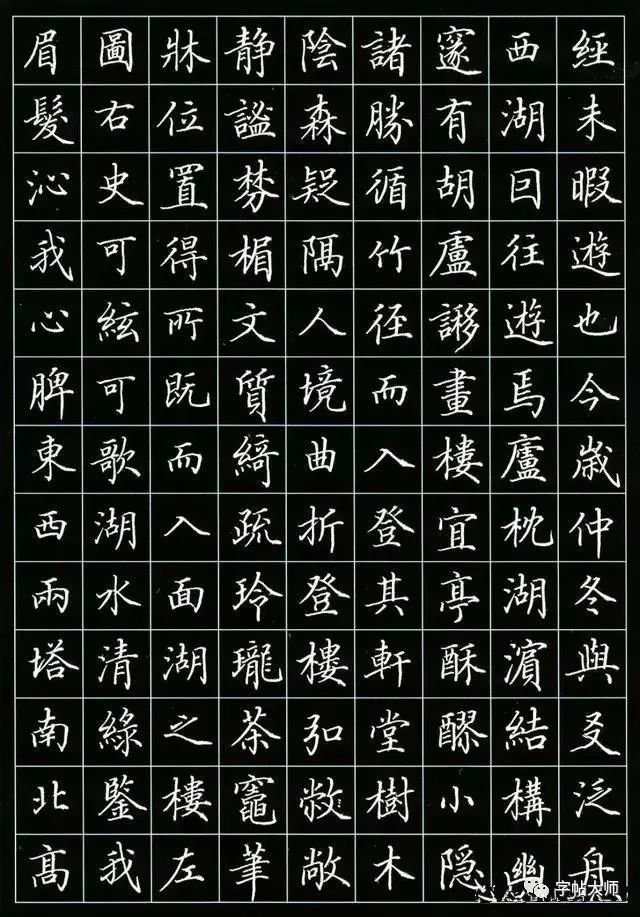 經未暇遊也今歲仲冬與友泛舟
西湖回往遊焉廬枕湖濵結構幽
邃有胡廬謻畫樓宜亭酥醪小隐
諸勝循竹径而入登其軒堂樹木
陰森疑隅人境曲折登樓弘敝敞
静謐棼楣文質綺疏玲瓏茶竈筆
牀位置得所既而入面湖之樓左
圖右史可絃可歌湖水清綠鑒我
眉髮沁我心脾東西兩塔南北髙
字帖大师